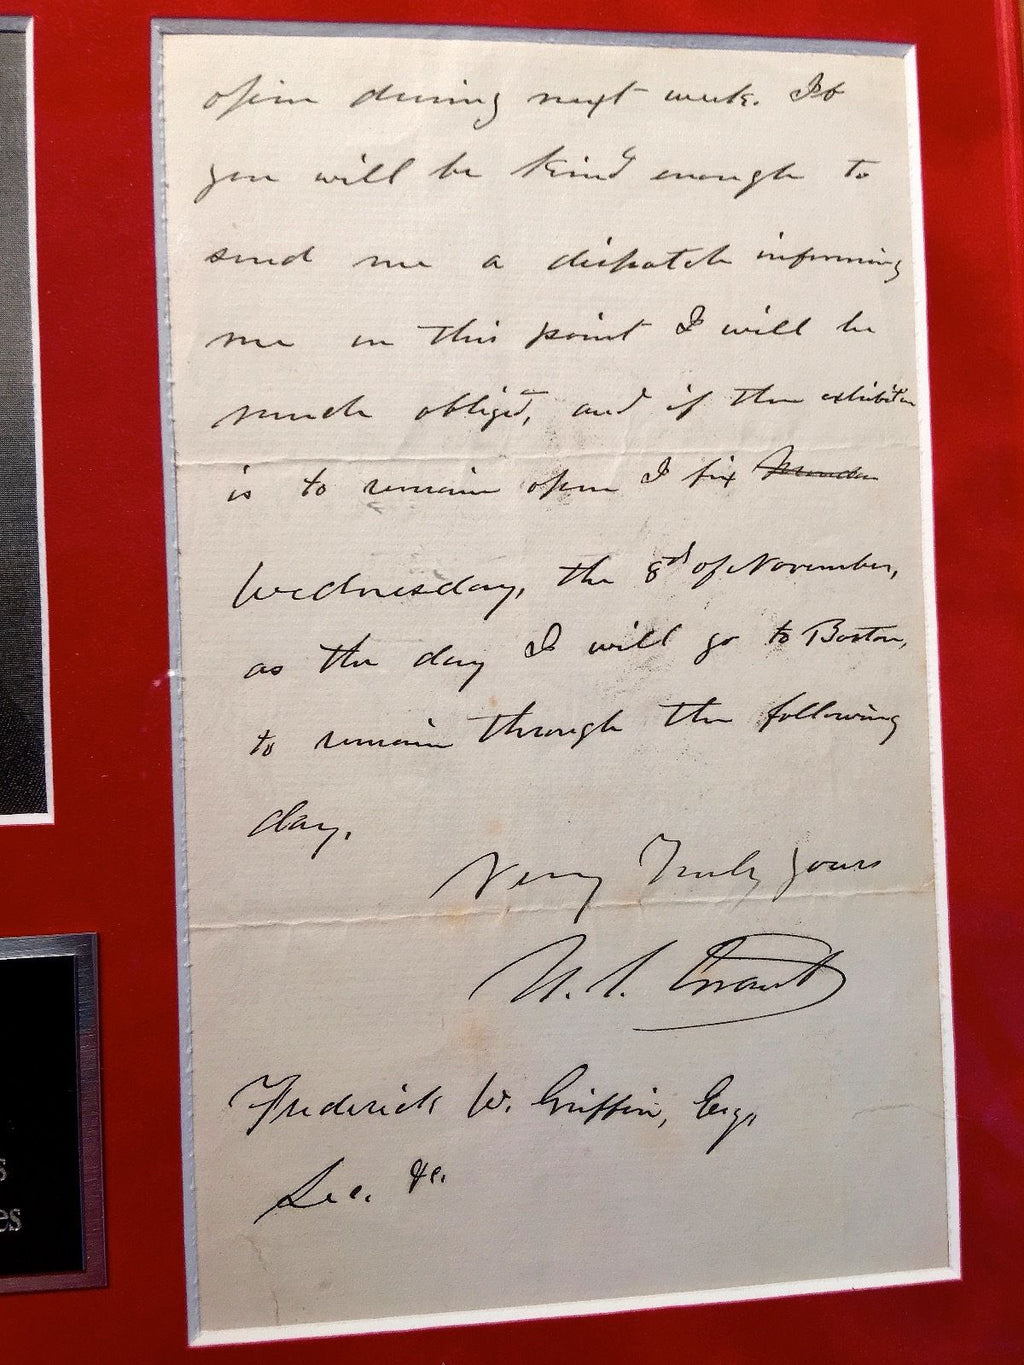 open during next week. If
you will be kind enough to
send me a dispatch informing
me on this point I will be
much oblig'd, and if the exhibition
is to remain open I fix Monday
Wednesday, the 8th of November,
as the day I will go to Boston,
to remain through the following
day.
Very Truly yours
U. S. Grant
Frederick W. Griffin, Esq.
Sec. &c.
s
es